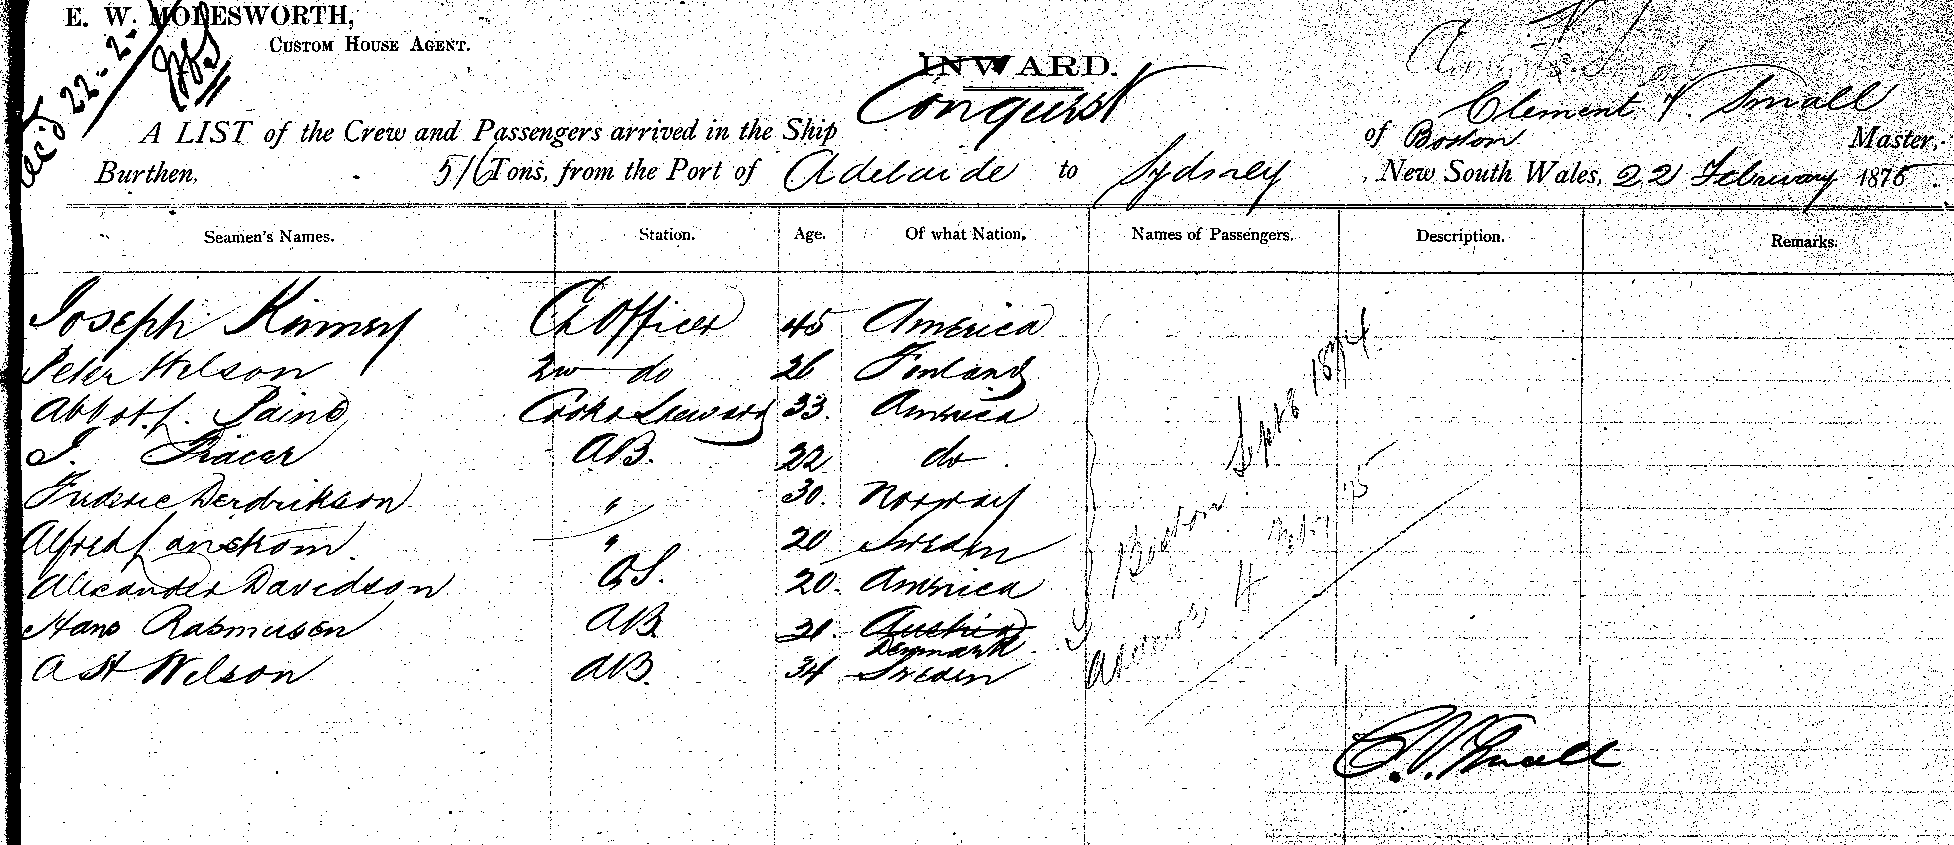 E. W. MOLESWORTH,
CUSTOM HOUSE AGENT.
22-2-
INWARD.
A LIST of the Crew and Passengers arrived in the Ship Conquest of Boston Clement V. Small Master,
Burthen, 516 Tons, from the Port of Adelaide to Sydney New South Wales, 22 February 1875.
Seamen's Names. Station. Age. Of what Nation, Names of Passengers. Description. Remarks.
Joseph Kinney Ch Officer 45 America
Peter Wilson 2nd do 26 Finland
Abbot L. Paine Cook & Steward 33. America
J. AB. 22 do
Frederic Derdrikson " 30. Norway
Alfred Lanstrom. " 20 Sweden
Alexander Davidson OS. 20. America
Hans Rasmusen AB 21. Austria Denmark
A H Wilson AB. 34 Sweden
Boston Sept 8 1874
4 Feby /75
C. V. Small